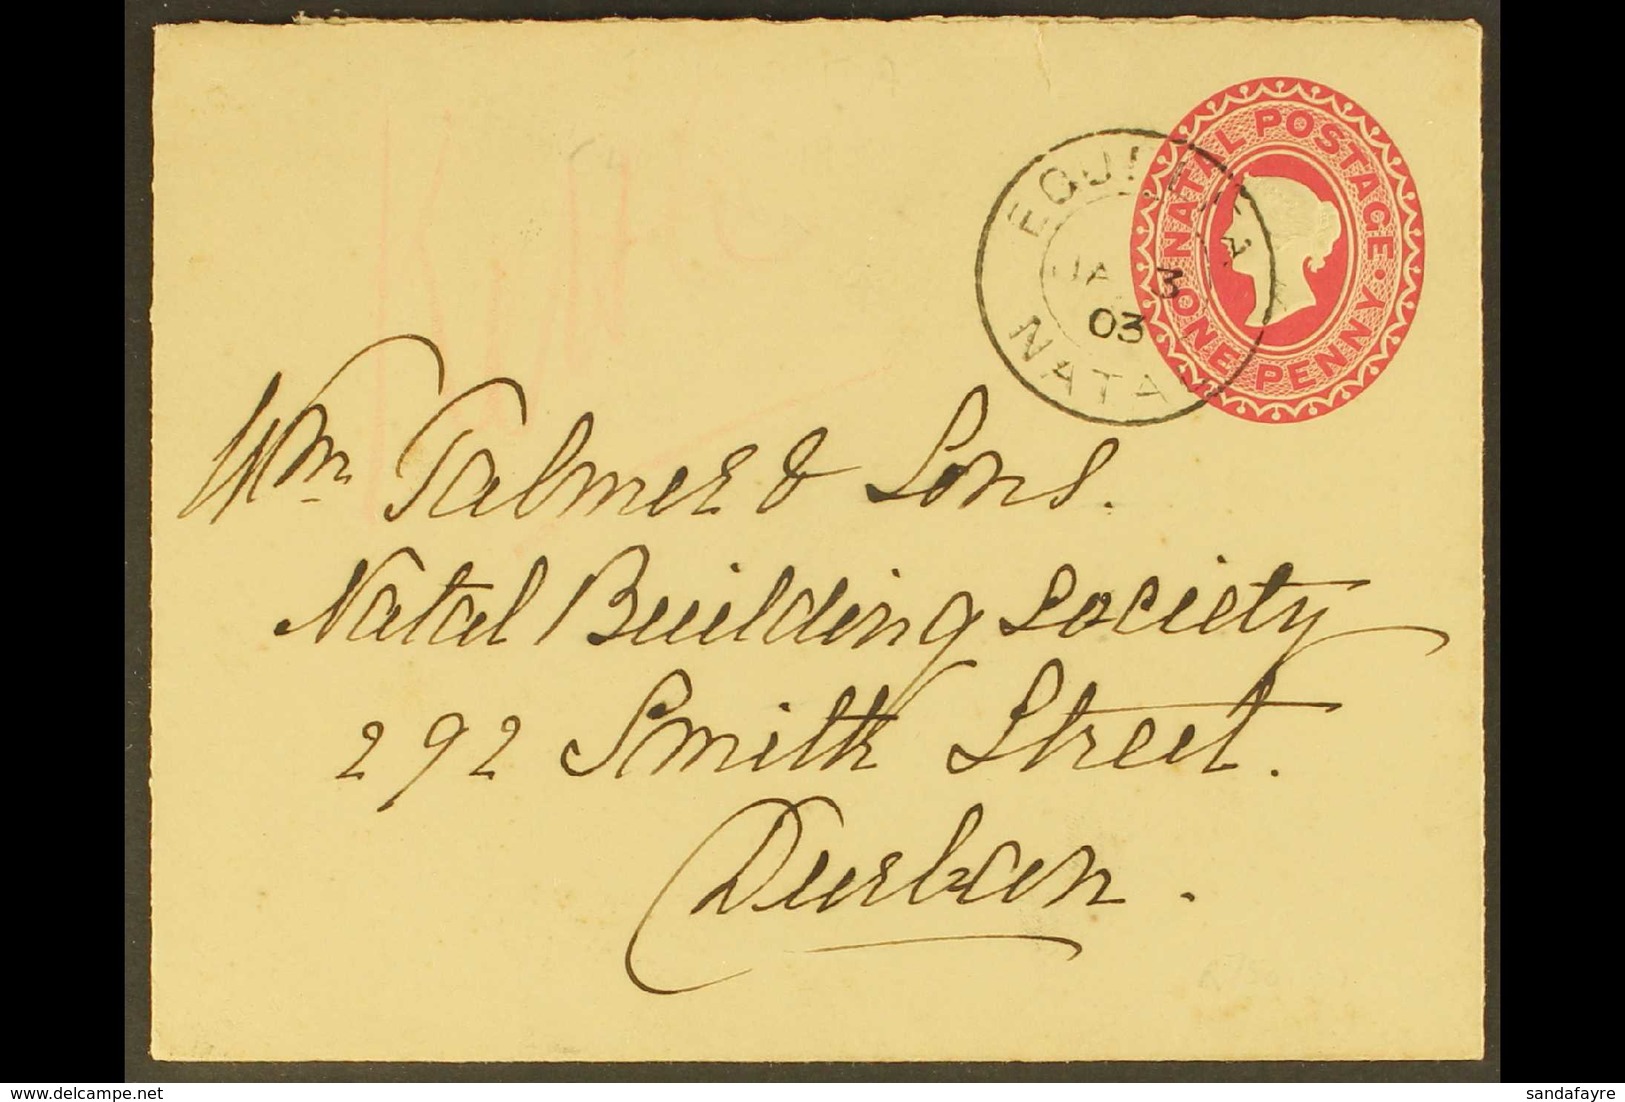 NATAL POSTAGE.
ONE PENNY
JA 3
03
NATAL
Wm Palmer & Sons.
Natal Building Society
292 Smith Street.
Durban.
sandafayre